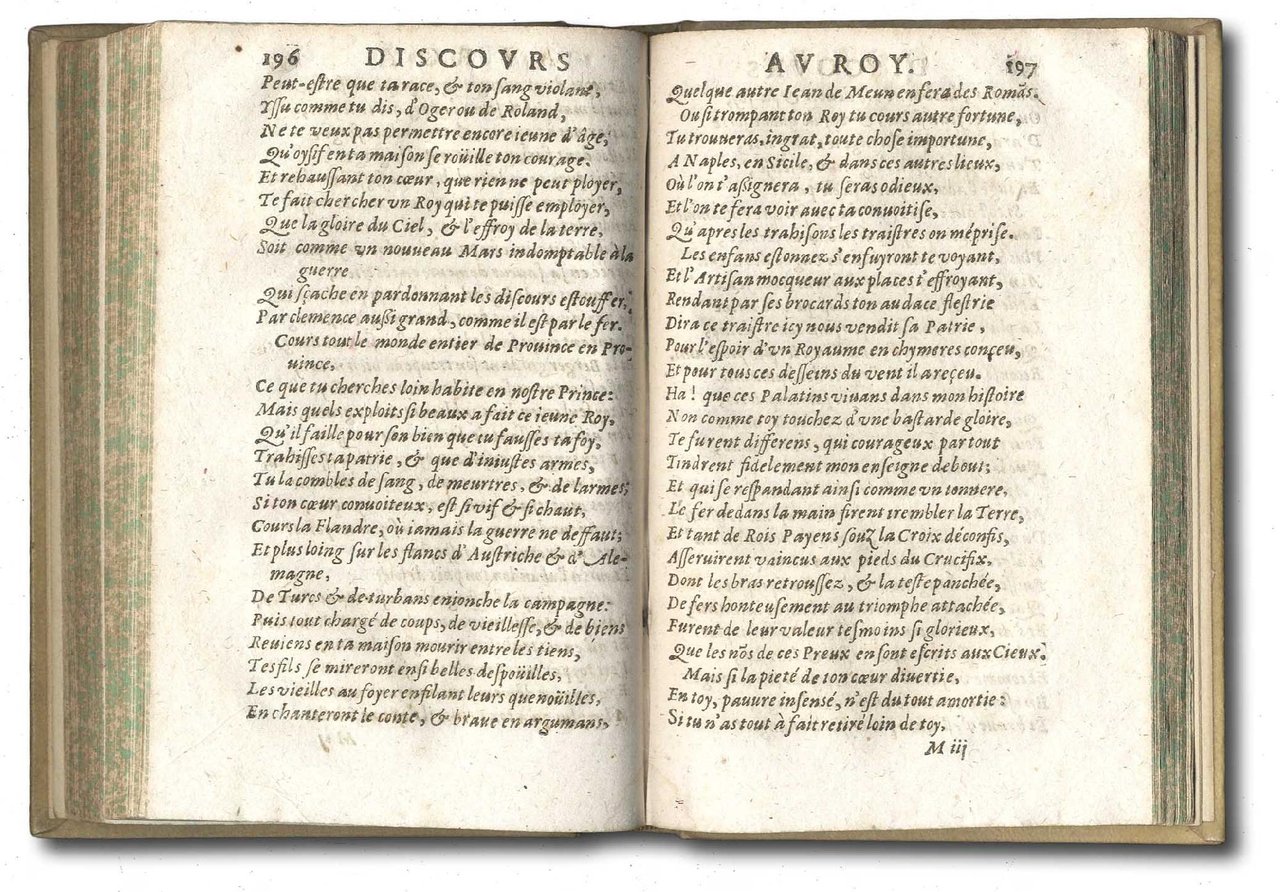 196 DISCOVRS
Peut-estre que ta race, & ton sang violant,
Yssu comme tu dis, d'Oger ou de Roland,
Ne te veux pas permettre encore ieune d'âge,
Qu'oysif en ta maison se roüille ton courage.
Et rehaussant ton cœur, que rien ne peut ployer,
Te fait chercher vn Roy qui te puisse employer,
Que la gloire du Ciel, & l'effroy de la terre,
Soit comme vn nouueau Mars indomptable à la
guerre
Qui sçache en pardonnant les discours estouffer,
Par clemence aussi grand, comme il est par le fer.
Cours tout le monde entier de Prouince en Pro-
uince,
Ce que tu cherches loin habite en nostre Prince:
Mais quels exploits si beaux a fait ce ieune Roy,
Qu'il faille pour son bien que tu fausses ta foy,
Trahisses ta patrie, & que d'iniustes armes,
Tu la combles de sang, de meurtres, & de larmes;
Si ton cœur conuoiteux, est si vif & si chaut,
Cours la Flandre, où iamais la guerre ne deffaut;
Et plus loing sur les flancs d'Austriche & d'Ale-
magne,
De Turcs & de turbans enionche la campagne:
Puis tout chargé de coups, de vieillesse, & de biens
Reuiens en ta maison mourir entre les tiens,
Tes fils se mireront en si belles despoüilles,
Les vieilles au foyer enfilant leurs quenoüilles,
En chanteront le conte, & braue en argumans,
AV ROY. 197
Quelque autre Iean de Meun en fera des Romãs.
Ou si trompant ton Roy tu cours autre fortune,
Tu trouueras, ingrat, toute chose importune,
A Naples, en Sicile, & dans ces autres lieux,
Où l'on t'assignera, tu seras odieux,
Et l'on te fera voir auec ta conuoitise,
Qu'apres les trahisons les traistres on méprise.
Les enfans estonnez s'enfuyront te voyant,
Et l'Artisan mocqueur aux places t'effroyant,
Rendant par ses brocards ton audace flestrie
Dira ce traistre icy nous vendit sa Patrie,
Pour l'espoir d'vn Royaume en chymeres conçeu,
Et pour tous ces desseins du vent il a reçeu.
Ha! que ces Palatins viuans dans mon histoire
Non comme toy touchez d'vne bastarde gloire,
Te furent differens, qui courageux par tout
Tindrent fidelement mon enseigne debout;
Et qui se respandant ainsi comme vn tonnere,
Le fer dedans la main firent trembler la Terre,
Et tant de Rois Payens souz la Croix déconfis,
Asseruirent vaincus aux pieds du Crucifix,
Dont les bras retroussez, & la teste panchée,
De fers honteusement au triomphe attachée,
Furent de leur valeur tesmoins si glorieux,
Que les nõs de ces Preux en sont escrits aux Cieux.
Mais si la pieté de ton cœur diuertie,
En toy, pauure insensé, n'est du tout amortie:
Si tu n'as tout à fait retiré loin de toy,
M iij